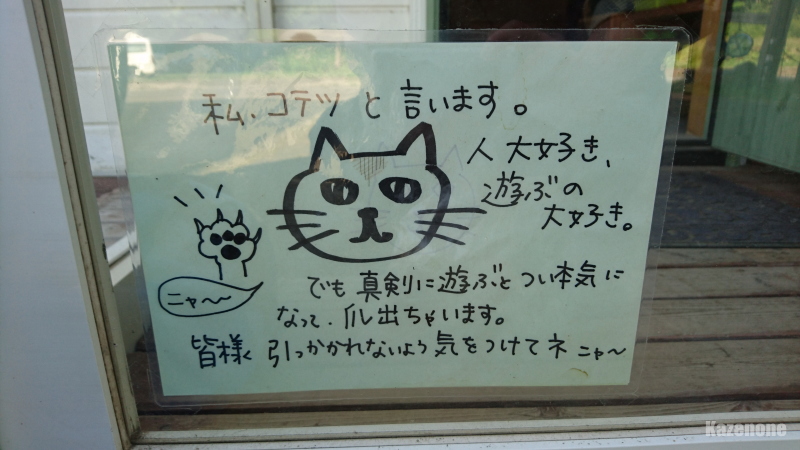 私、コテツ と 言います。
人 大好き、
遊ぶの
大好き。
ニャ〜〜
でも 真剣に遊ぶと つい本気に
なって、爪出ちゃいます。
皆様 引っかかれないよう 気をつけてネ ニャ〜
Kazenone